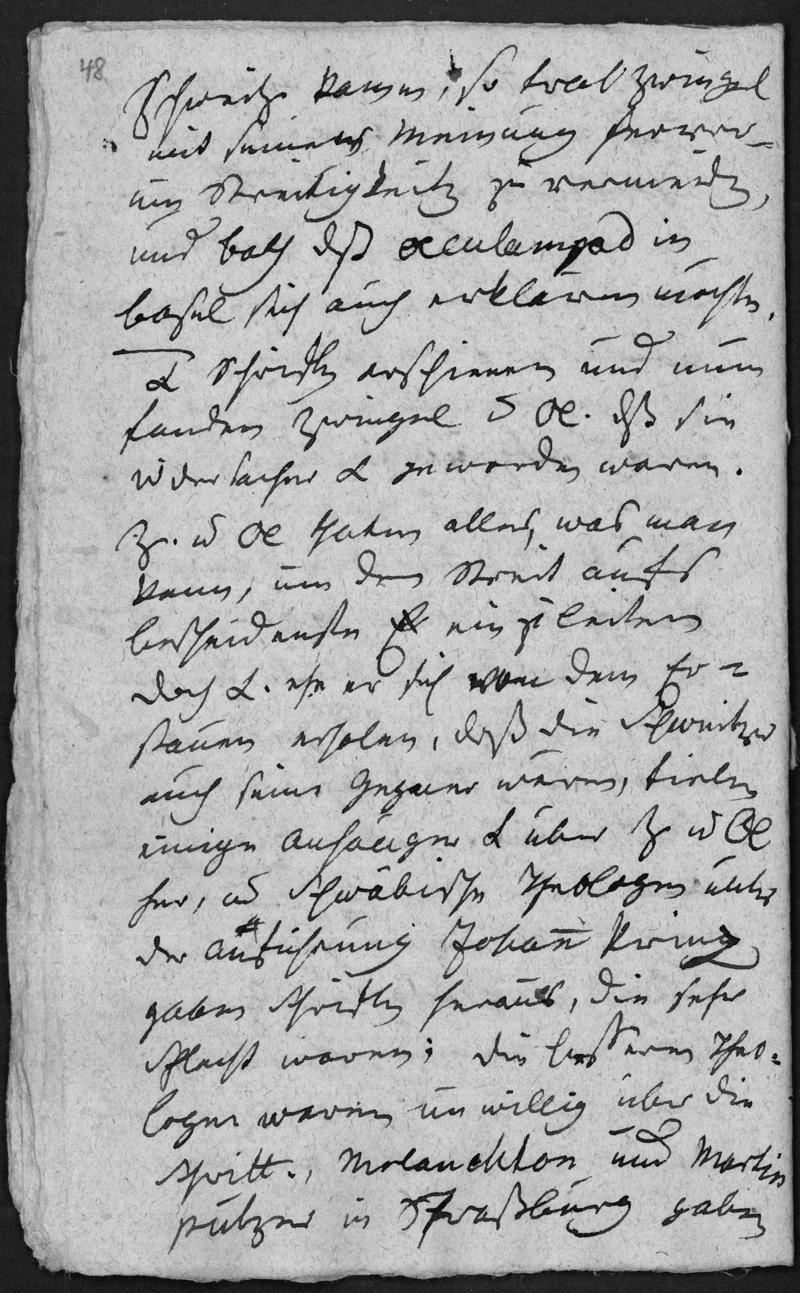 48
Schweitz kamen, so trat Zwingel
mit seiner Meinung hervor
um Streitigkeitz zu vermeidn,
und bath dß Oeculampad in
basel sich auch erklären möchte.
L Schriftn erschienen und nun
fanden Zwingel u Oe. dß sie
Widersacher L geworden waren.
Z. u Oe thaten alles, was man
kann, um den Streit aufs
bescheidenste einzuleiten
doch L. ehe er sich von dem Er=
staunen erholen, daß die Schweitzer
auch seine Gegner wären, fielen
einige Anhänger L über Z u Oe
her, u Schwäbische Theologen unter
der Anführung Johann
gaben Schriftn heraus, die sehr
schlecht waren; die besseren Theo=
logen waren unwillig über die
Schrift., Melanckton und Martin
putzer in Straßburg gaben